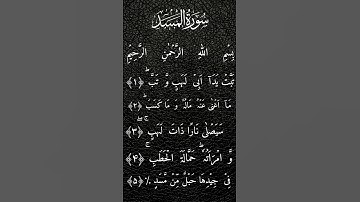 سُوْرَةُ الْمَسَدِ
بِسْمِ اللهِ الرَّحْمٰنِ الرَّحِيْمِ
تَبَّتْ يَدَاۤ اَبِيْ لَهَبٍ وَّ تَبَّؕ ﴿۱﴾
مَاۤ اَغْنٰى عَنْهُ مَالُهٗ وَ مَا كَسَبَؕ ﴿۲﴾
سَيَصْلٰى نَارًا ذَاتَ لَهَبٍۚۖ ﴿۳﴾
وَّ امْرَاَتُهٗؕ حَمَّالَةَ الْحَطَبِۚ ﴿۴﴾
فِيْ جِيْدِهَا حَبْلٌ مِّنْ مَّسَدٍ٪ ﴿۵﴾